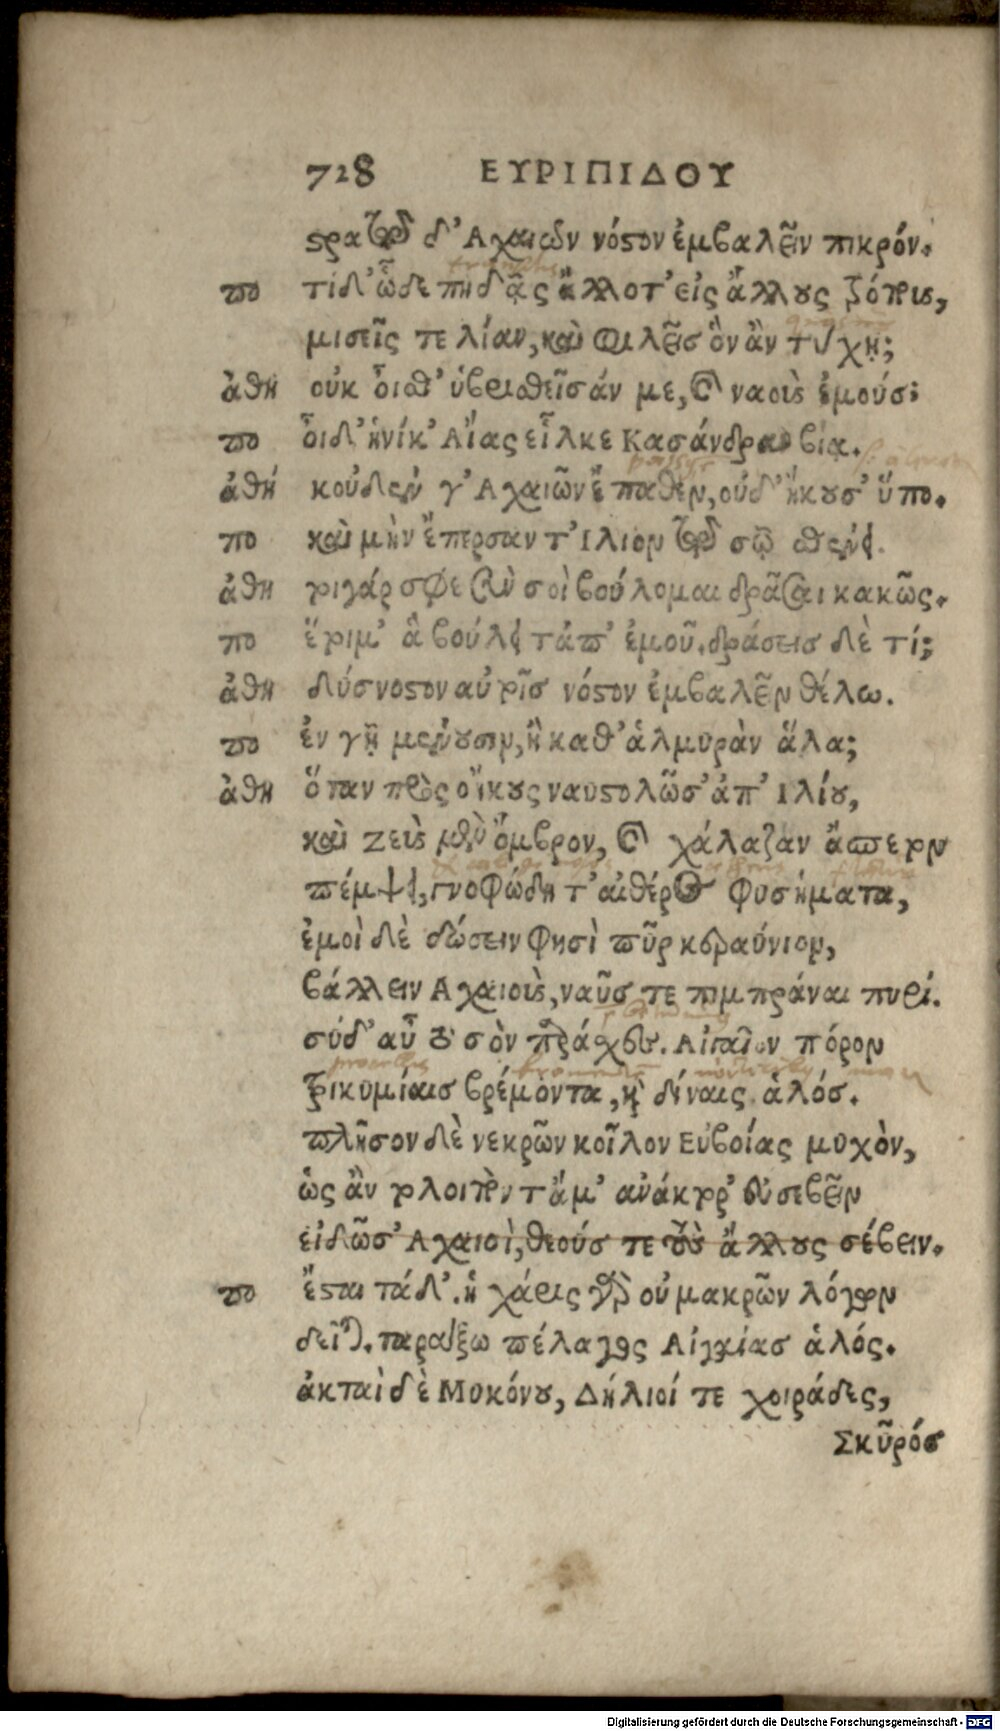 728 ΕΥΡΙΠΙΔΟΥ
στρατῷ δ' Αχαιῶν νόστον ἐμβαλεῖν πικρόν.
πο τί δ' ὧδε πηδᾷς ἄλλοτ' εἰς ἄλλους τρόπους,
μισεῖς τε λίαν, καὶ φιλεῖσ ὃν ἂν τύχῃ;
ἀθη οὐκ οἶσθ' ὑβρισθεῖσάν με, καὶ ναοὺς ἐμούσ;
πο οἶδ' ἡνίκ' Αἴας εἷλκε Κασάνδραν βίᾳ.
ἀθή κοὐδὲν γ' Αχαιῶν ἔπαθεν, οὐδ' ἤκουσ' ὕπο.
πο καὶ μὴν ἔπερσαν τ' Ιλιον τῷ σῷ σθένει.
ἀθη τιγάρ σφε σὺν σοὶ βούλομαι δρᾶσαι κακῶς.
πο ἕτοιμ' ἃ βούλει τἀπ' ἐμοῦ. δράσεισ δὲ τί;
ἀθη δύσνοστον αὐτοῖσ νόστον ἐμβαλεῖν θέλω.
πο ἐν γῇ μενόντων, ἢ καθ' ἁλμυρὰν ἅλα;
ἀθη ὅταν πρὸς οἴκους ναυστολῶσ' ἀπ' Ιλίου,
καὶ Ζεὺς μὲν ὄμβρον, καὶ χάλαζαν ἄσπετον
πέμψει, γνοφώδη τ' αἰθέρος φυσήματα,
ἐμοὶ δὲ δώσειν φησὶ πῦρ κεραύνιον,
βάλλειν Αχαιοὺς, ναῦσ τε πιμπράναι πυρί.
σύ δ' αὖ τὸ σὸν παράσχες. Αἰγαῖον πόρον
τρικυμίαισ βρέμοντα, καὶ δίναις ἁλόσ.
πλῆσον δὲ νεκρῶν κοῖλον Εὐβοίας μυχὸν,
ὡς ἂν τὸ λοιπὸν τἄμ' ἀνάκτορ' εὐσεβεῖν
εἰδῶσ' Αχαιοὶ, θεούσ τε τοὺς ἄλλους σέβειν.
πο ἔσται τάδ'. ἡ χάρις γὰρ οὐ μακρῶν λόγων
δεῖται. ταράξω πέλαγος Αἰγαίασ ἁλός.
ἀκταὶ δὲ Μυκόνου, Δήλιοί τε χοιράδες,
Σκῦρόσ
Digitalisierung gefördert durch die Deutsche Forschungsgemeinschaft - DFG